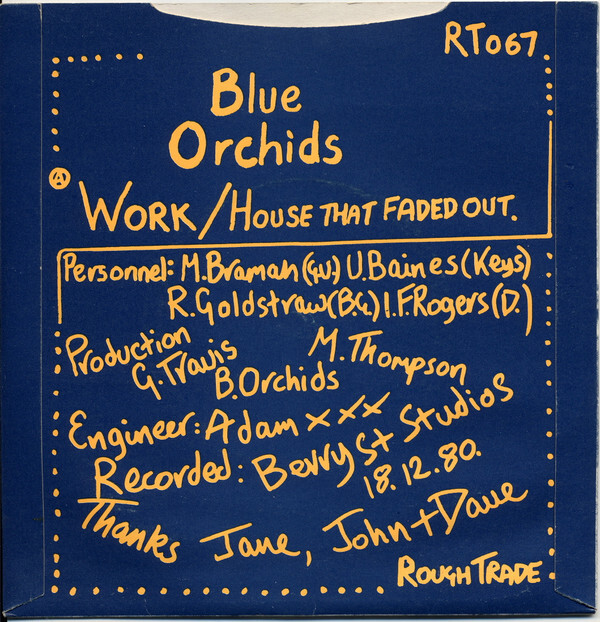 RT067
Blue
Orchids
Ⓐ
WORK/HOUSE THAT FADED OUT.
Personnel: M.Bramah(G,V.) U.Baines(Keys)
R.Goldstraw(B.G.) I.F.Rogers(D.)
Production
G.Travis M.Thompson
B.Orchids
Engineer: Adam xxx
Recorded: Berry St Studios
18.12.80.
Thanks Jane, John + Dave
ROUGH TRADE